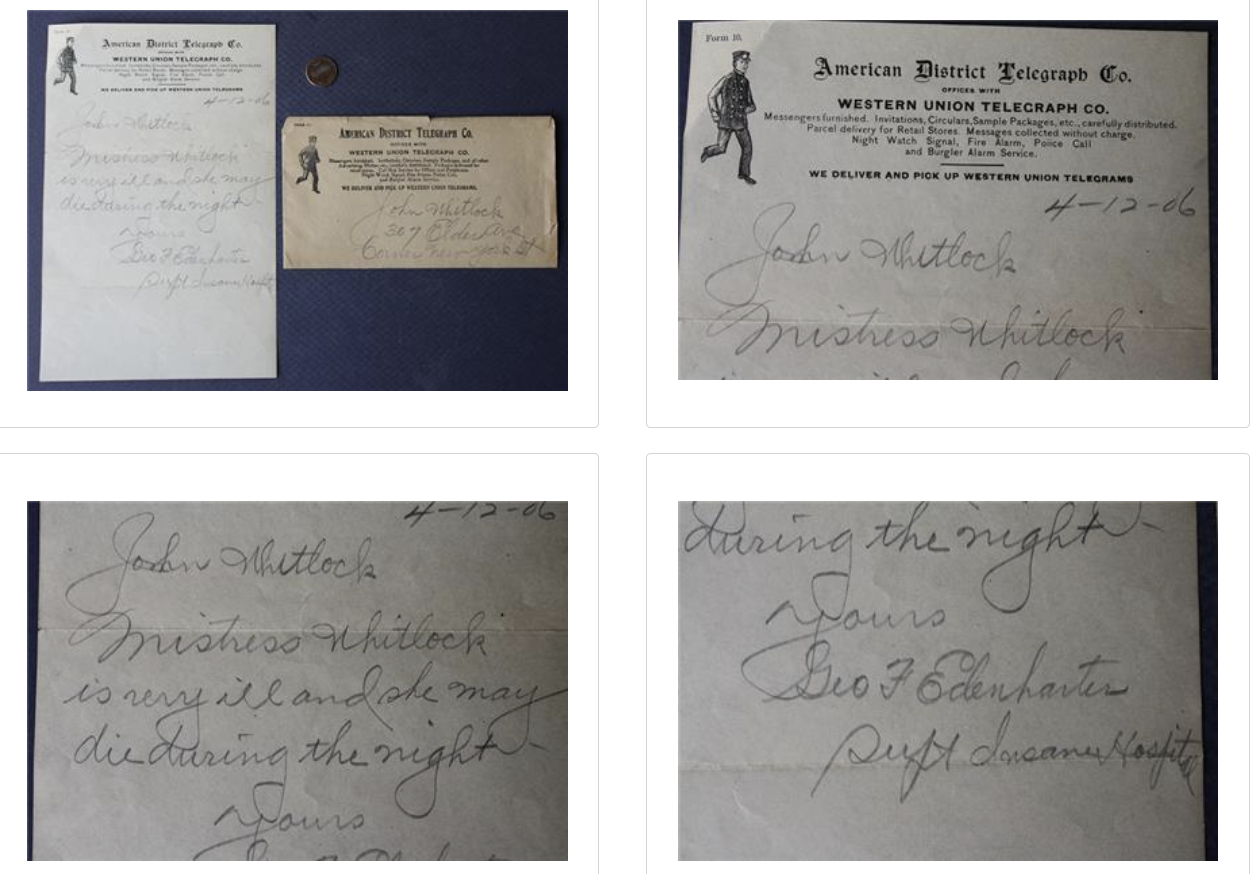 American District Telegraph Co.
OFFICES WITH
WESTERN UNION TELEGRAPH CO.
WE DELIVER AND PICK UP WESTERN UNION TELEGRAMS
4-12-06
John Whitlock
Mistress Whitlock
is very ill and she may
die during the night
Yours
Geo F Edenharter
Supt Insane Hospital
AMERICAN DISTRICT TELEGRAPH CO.
OFFICES WITH
WESTERN UNION TELEGRAPH CO.
WE DELIVER AND PICK UP WESTERN UNION TELEGRAMS.
John Whitlock
307 Elder Ave
Corner New York St
Form 10.
American District Telegraph Co.
OFFICES WITH
WESTERN UNION TELEGRAPH CO.
Messengers furnished. Invitations, Circulars, Sample Packages, etc., carefully distributed.
Parcel delivery for Retail Stores. Messages collected without charge.
Night Watch Signal, Fire Alarm, Police Call
and Burgler Alarm Service.
WE DELIVER AND PICK UP WESTERN UNION TELEGRAMS
4-12-06
John Whitlock
Mistress Whitlock
4-12-06
John Whitlock
Mistress Whitlock
is very ill and she may
die during the night-
Yours
during the night-
Yours
Geo F Edenharter
Supt Insane Hospital